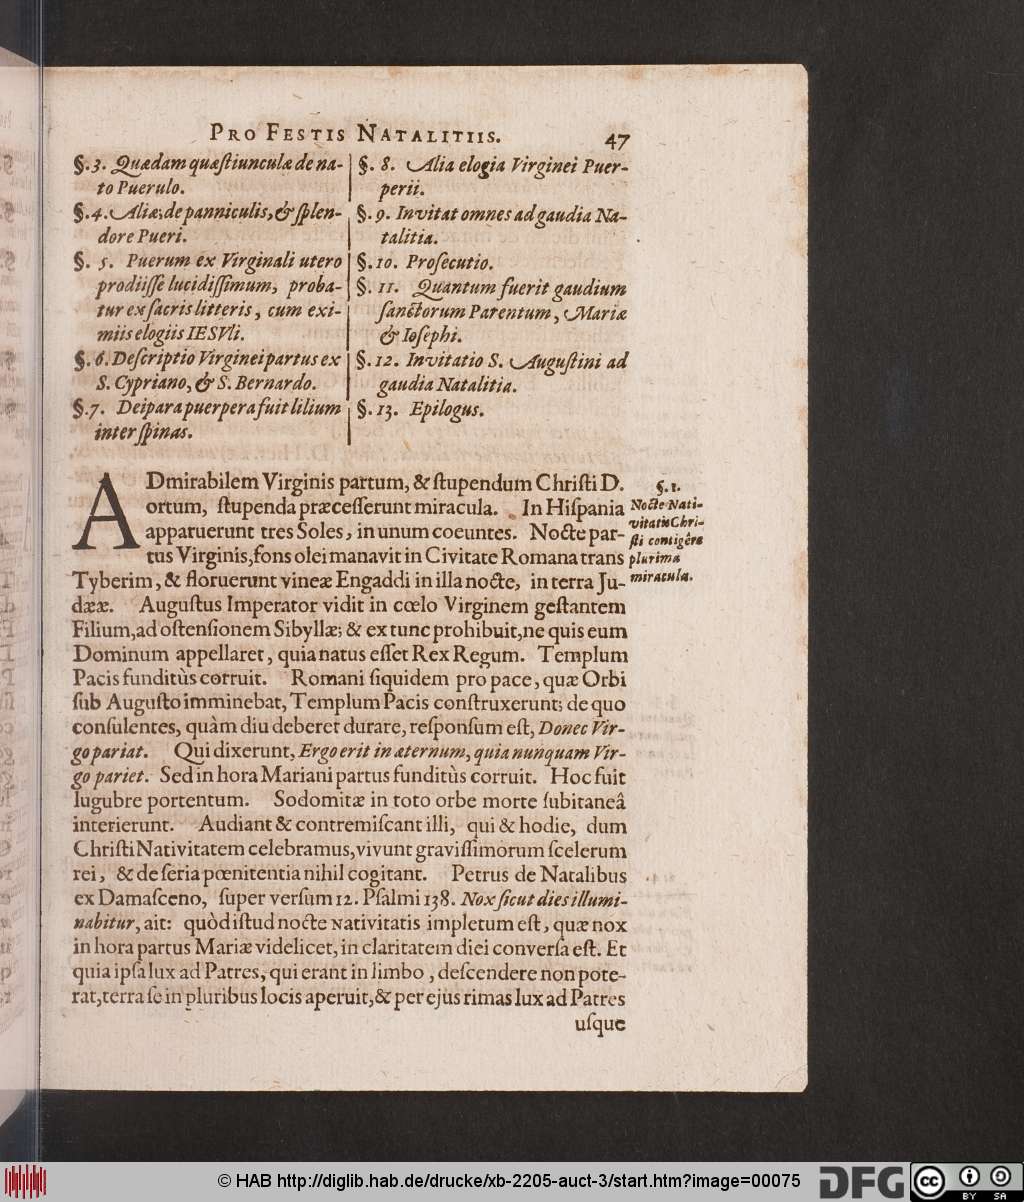 PRO FESTIS NATALITIIS. 47
§.3. Quædam quæſtiunculæ de na-
to Puerulo.
§.4. Aliæ; de panniculis, & ſplen-
dore Pueri.
§. 5. Puerum ex Virginali utero
prodiiſſe lucidiſſimum, proba-
tur ex ſacris litteris, cum exi-
miis elogiis IESVli.
§.6. Deſcriptio Virginei partus ex
S. Cypriano, & S. Bernardo.
§.7. Deipara puerpera fuit lilium
inter ſpinas.
§. 8. Alia elogia Virginei Puer-
perii.
§.9. Invitat omnes ad gaudia Na-
talitia.
§.10. Proſecutio.
§. 11. Quantum fuerit gaudium
ſanctorum Parentum, Mariæ
& Ioſephi.
§.12. Invitatio S. Auguſtini ad
gaudia Natalitia.
§.13. Epilogus.
ADmirabilem Virginis partum, & ſtupendum Chriſti D.
ortum, ſtupenda præceſſerunt miracula. In Hiſpania
apparuerunt tres Soles, in unum coeuntes. Nocte par-
tus Virginis, fons olei manavit in Civitate Romana trans
Tyberim, & floruerunt vineæ Engaddi in illa nocte, in terra Ju-
dææ. Auguſtus Imperator vidit in cœlo Virginem geſtantem
Filium, ad oſtenſionem Sibyllæ; & ex tunc prohibuit, ne quis eum
Dominum appellaret, quia natus eſſet Rex Regum. Templum
Pacis funditùs corruit. Romani ſiquidem pro pace, quæ Orbi
ſub Auguſto imminebat, Templum Pacis conſtruxerunt; de quo
conſulentes, quàm diu deberet durare, reſponſum eſt, Donec Vir-
go pariat. Qui dixerunt, Ergo erit in æternum, quia nunquam Vir-
go pariet. Sed in hora Mariani partus funditùs corruit. Hoc fuit
lugubre portentum. Sodomitæ in toto orbe morte ſubitaneâ
interierunt. Audiant & contremiſcant illi, qui & hodie, dum
Chriſti Nativitatem celebramus, vivunt graviſſimorum ſcelerum
rei, & de ſeria pœnitentia nihil cogitant. Petrus de Natalibus
ex Damaſceno, ſuper verſum 12. Pſalmi 138. Nox ſicut dies illumi-
nabitur, ait: quòd iſtud nocte Nativitatis impletum eſt, quæ nox
in hora partus Mariæ videlicet, in claritatem diei converſa eſt. Et
quia ipſa lux ad Patres, qui erant in limbo, deſcendere non pote-
rat, terra ſe in pluribus locis aperuit, & per ejus rimas lux ad Patres
uſque
§. 1.
Nocte Nati-
vitatis Chri-
ſti contigêre
plurima
miracula.
© HAB http://diglib.hab.de/drucke/xb-2205-auct-3/start.htm?image=00075
DFG
cc BY SA